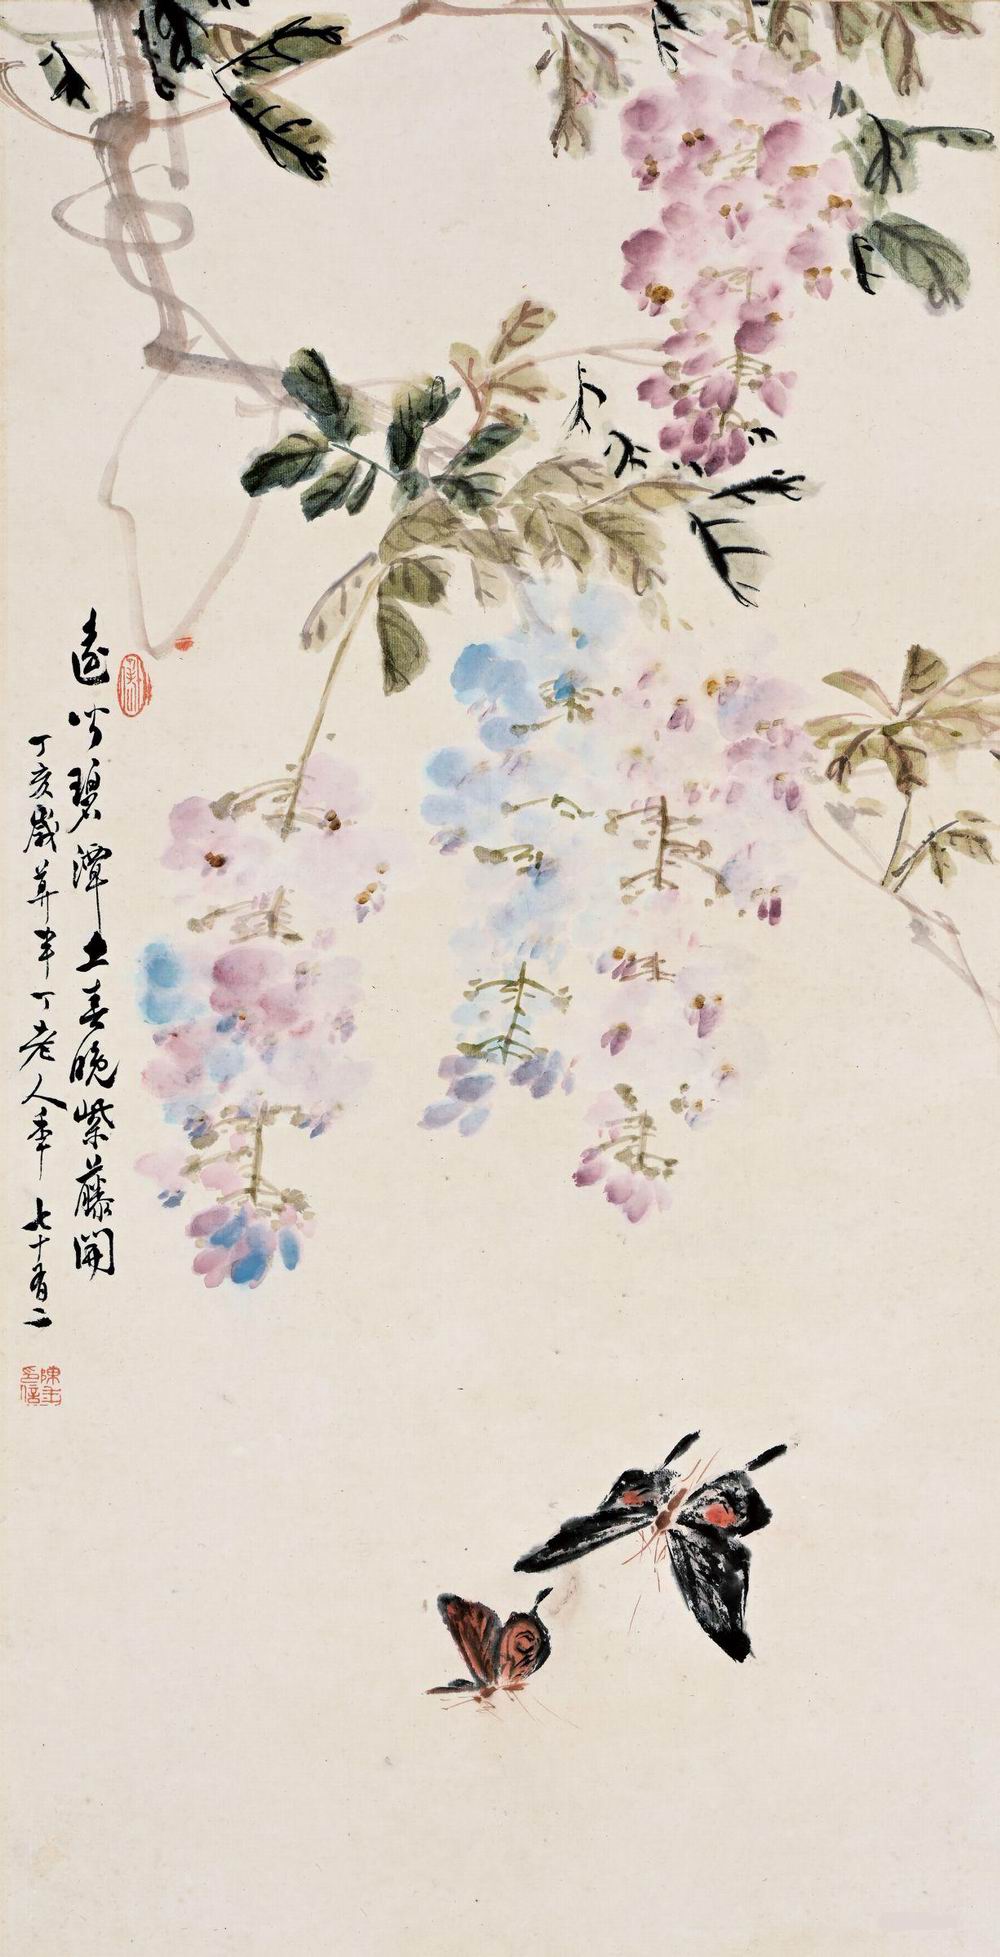 遙聞碧潭上春晚紫藤開
丁亥歲莫半丁老人年七十有二
陳年印信